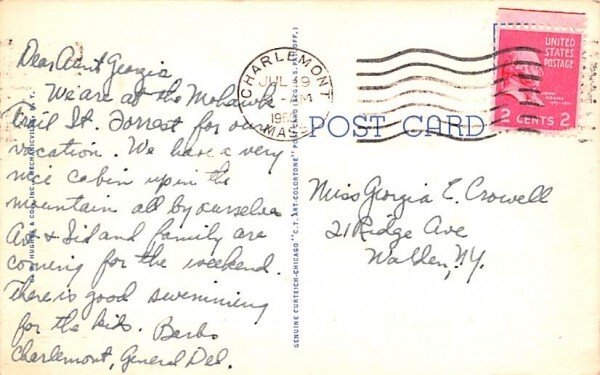 Dear Aunt Georgia
We are at the Mohawk
Trail St. Forrest for our
vacation. We have a very
nice cabin up in the
mountain all by ourselves
Av & Sid and family are
coming for the weekend.
There is good swimming
for the kids. Barbs
Charlemont, General Del.
GENUINE CURTEICH-CHICAGO "C.T. ART-COLORTONE" POST CARD (REG. U.S. PAT. OFF.)
CHARLEMONT
JUL 9
M
MASS
POST CARD
UNITED
STATES
POSTAGE
JOHN
ADAMS
2 CENTS 2
Miss Georgia E. Crowell
21 Ridge Ave
Walden, N.Y.